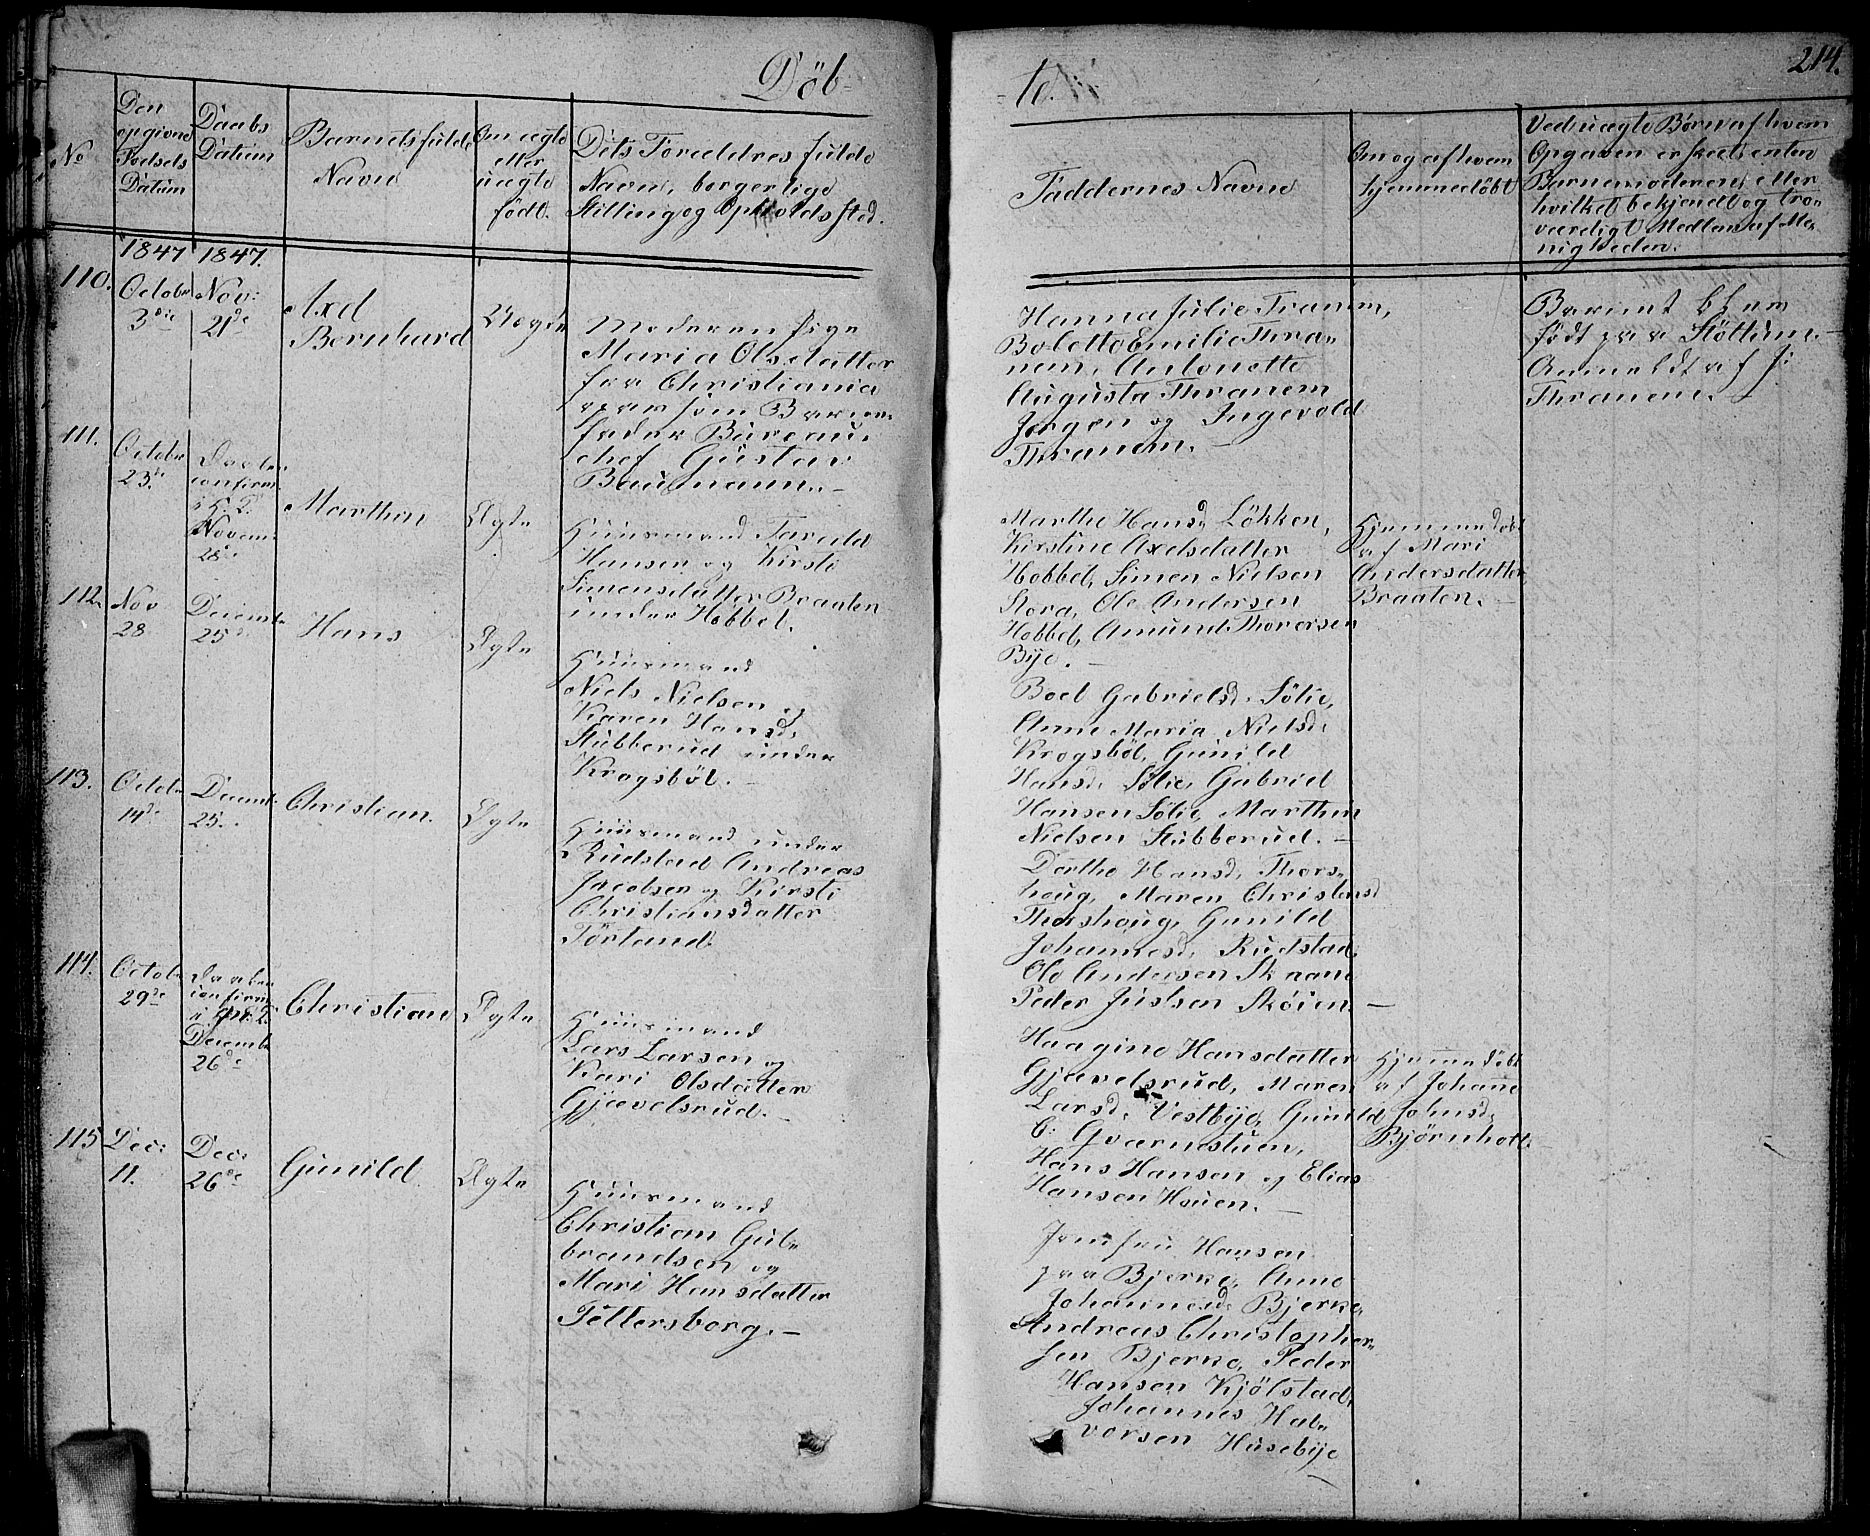 Döb-
-te.
214.
No
Den
opgivne
Födsels
Datum
Daabs
Datum
Barnets fulde
Navn
Om ægte
eller
uægte
födt.
Dets Forældres fulde
Navn, borgerlige
Stilling og Opholdssted.
Faddernes Navne
Om og af hvem
hjemmedöbt
Ved uægte Börn af hvem
Opgaven er skeet, enten
Barnemoderen, eller
hvilket bekjendt og tro-
værdigt Medlem af Me-
nigheden.
1847
1847.
110.
Octobr
3die
Nov:
21de
Axel
Bernhard
Uægte
Moderen Pige
Maria Olsdatter
fra Christiania
som Barne-
fader Bureau-
chef Gustav
Baumann.-
Hanna Julie Tranem,
Bolette Emilie Thra-
nem, Antonette
Augusta Thranem
Jörgen og Ingevald
Thranem.-
Barnet er
födt paa Stöttum.-
Anmeldt af J:
Thranem.-
111.
Octobr
23de
Daaben
confirm.
i H. K.
Novem.
28de
Marthin
Ægte
Huusmand Tarald
Hansen og Kirsti
Simensdatter Braaten
under Hobbel.
Marthe Hansd. Lökken,
Kirstine Axelsdatter
Hobbel, Simen Nielsen
Stora, Ole Andersen
Hobbel, Amund Thoresen
Bye.-
Hjemmedöbt
af Mari
Andersdatter
Braaten.-
112.
Nov
28
Decembr
25de
Hans
Ægte
Huusmand
Niels Nielsen og
Karen Hansd.
Stubberud under
Krogsböl.-
Boel Gabrielsd. Sölie,
Anne Maria Nielsd.
Krogsböl, Gunild
Hansd. Sölie, Gabriel
Hansen Sölie, Marthin
Nielsen Stubberud.-
113.
Octobr
14de
Decemb.
25.
Christian.
Ægte
Huusmand under
Rudstad Andreas
Jacobsen og Kirsti
Christiansdatter
Törland.
Dorthe Hansd. Thors-
houg, Maren Christensd
Thorshoug, Gunild
Johannesd. Rudstad,
Ole Andersen Skaane
Peder Justsen Sköien.-
114.
Octobr
29de
Daaben
confirm
i
Decemb
26de
Christian
Ægte
Huusmand
Lars Larsen og
Kari Olsdatter
Gjævelsrud.-
Haagine Hansdatter
Gjævelsrud, Maren
Larsd. Vestbye, Gunild
C: Qværnestuen,
Hans Hansen og Elias
Hansen Houen.-
Hjemmedöbt
af Johane
Johnsd.
Björnholt.-
115
Dec:
11.
Dec:
26de
Gunild
Ægte
Huusmand
Christian Gul-
brandsen og
Mari Hansdatter
Pettersborg.-
Jomfru Hansen
paa Bjerke, Anne
Johannesd. Bjerke,
Andreas Christopher-
sen Bjerke, Peder
Hansen Kjölstad,
Johannes Hal-
vorsen Husebye